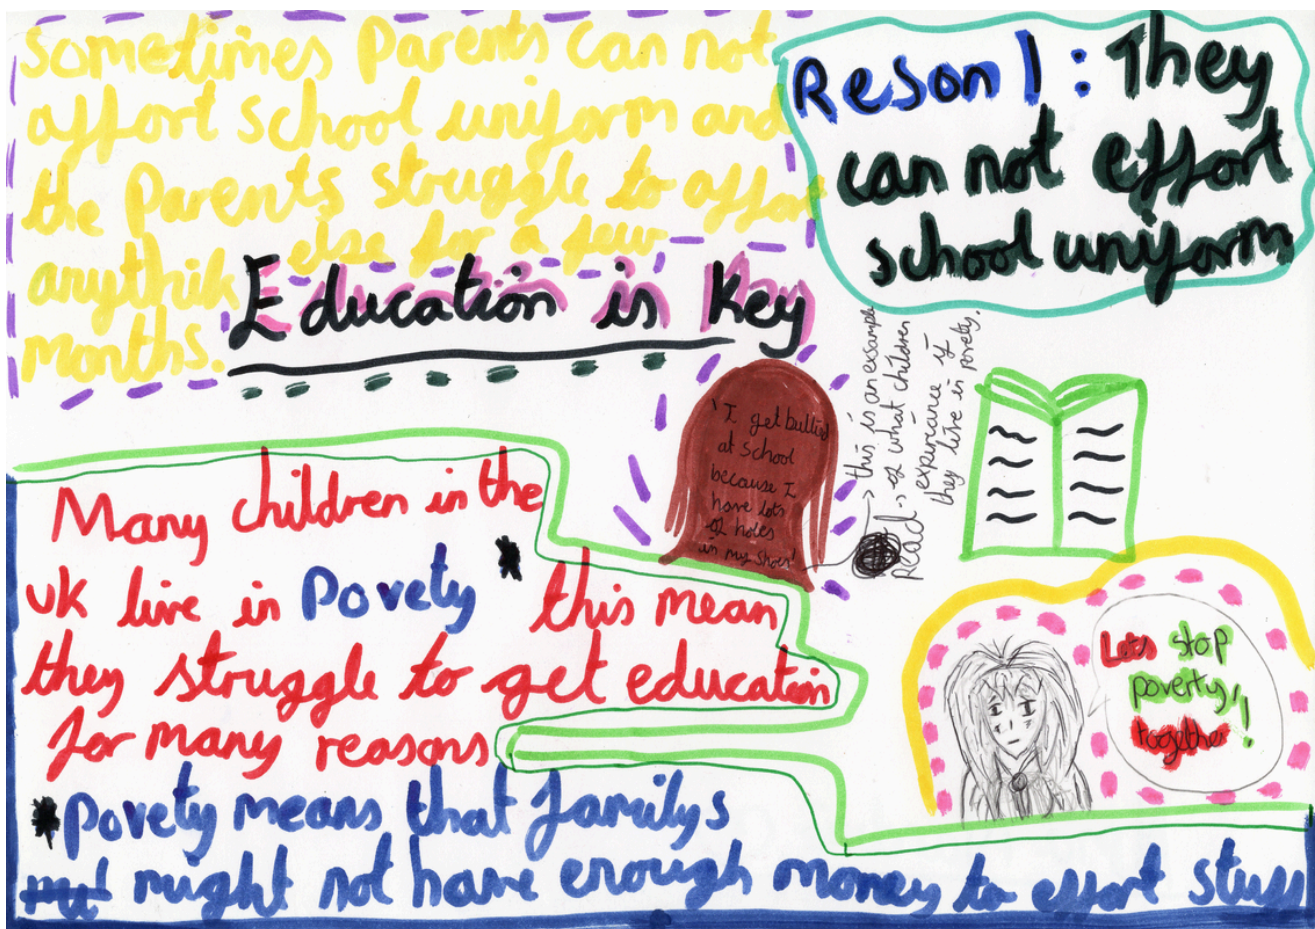 Sometimes Parents can not
affort school uniform and
the Parents struggle to affort
anythik else for a few
months.
Reson 1: They
can not effort
school uniform
Education is Key
'I get bullied
at school
because I
have lots
of holes
in my shoes'
this is an example
of what children
experiance if
they live in povety.
Read
Many children in the
UK live in Povety * this mean
they struggle to get education
for many reasons
Lets stop
poverty,
together!
*Povety means that familys
might not have enough money to effort stuff